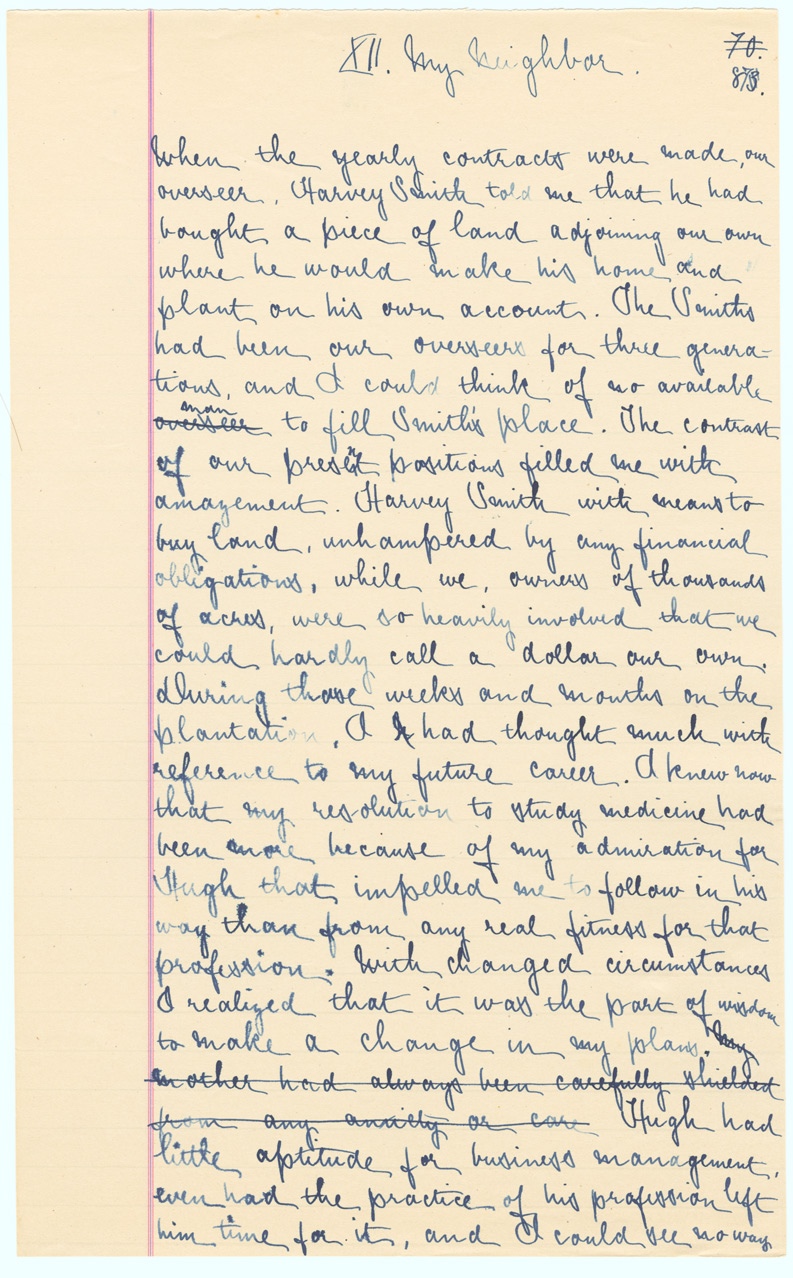 XII. My Neighbor.
70.
873.
When the yearly contracts were made, our
overseer, Harvey Smith told me that he had
bought a piece of land adjoining our own
where he would make his home and
plant on his own account. The Smiths
had been our overseers for three genera-
tions, and I could think of no available
man
overseer to fill Smith's place. The contrast
of our present positions filled me with
amazement. Harvey Smith with means to
buy land, unhampered by any financial
obligations, while we, owners of thousands
of acres, were so heavily involved that we
could hardly call a dollar our own.
During those weeks and months on the
plantation, I had thought much with
reference to my future career. I knew now
that my resolution to study medicine had
been more because of my admiration for
Hugh that impelled me to follow in his
way than from any real fitness for that
profession. With changed circumstances
I realized that it was the part of wisdom
to make a change in my plans. My
mother had always been carefully shielded
from any anxiety or care Hugh had
little aptitude for business management,
even had the practice of his profession left
him time for it, and I could see no way